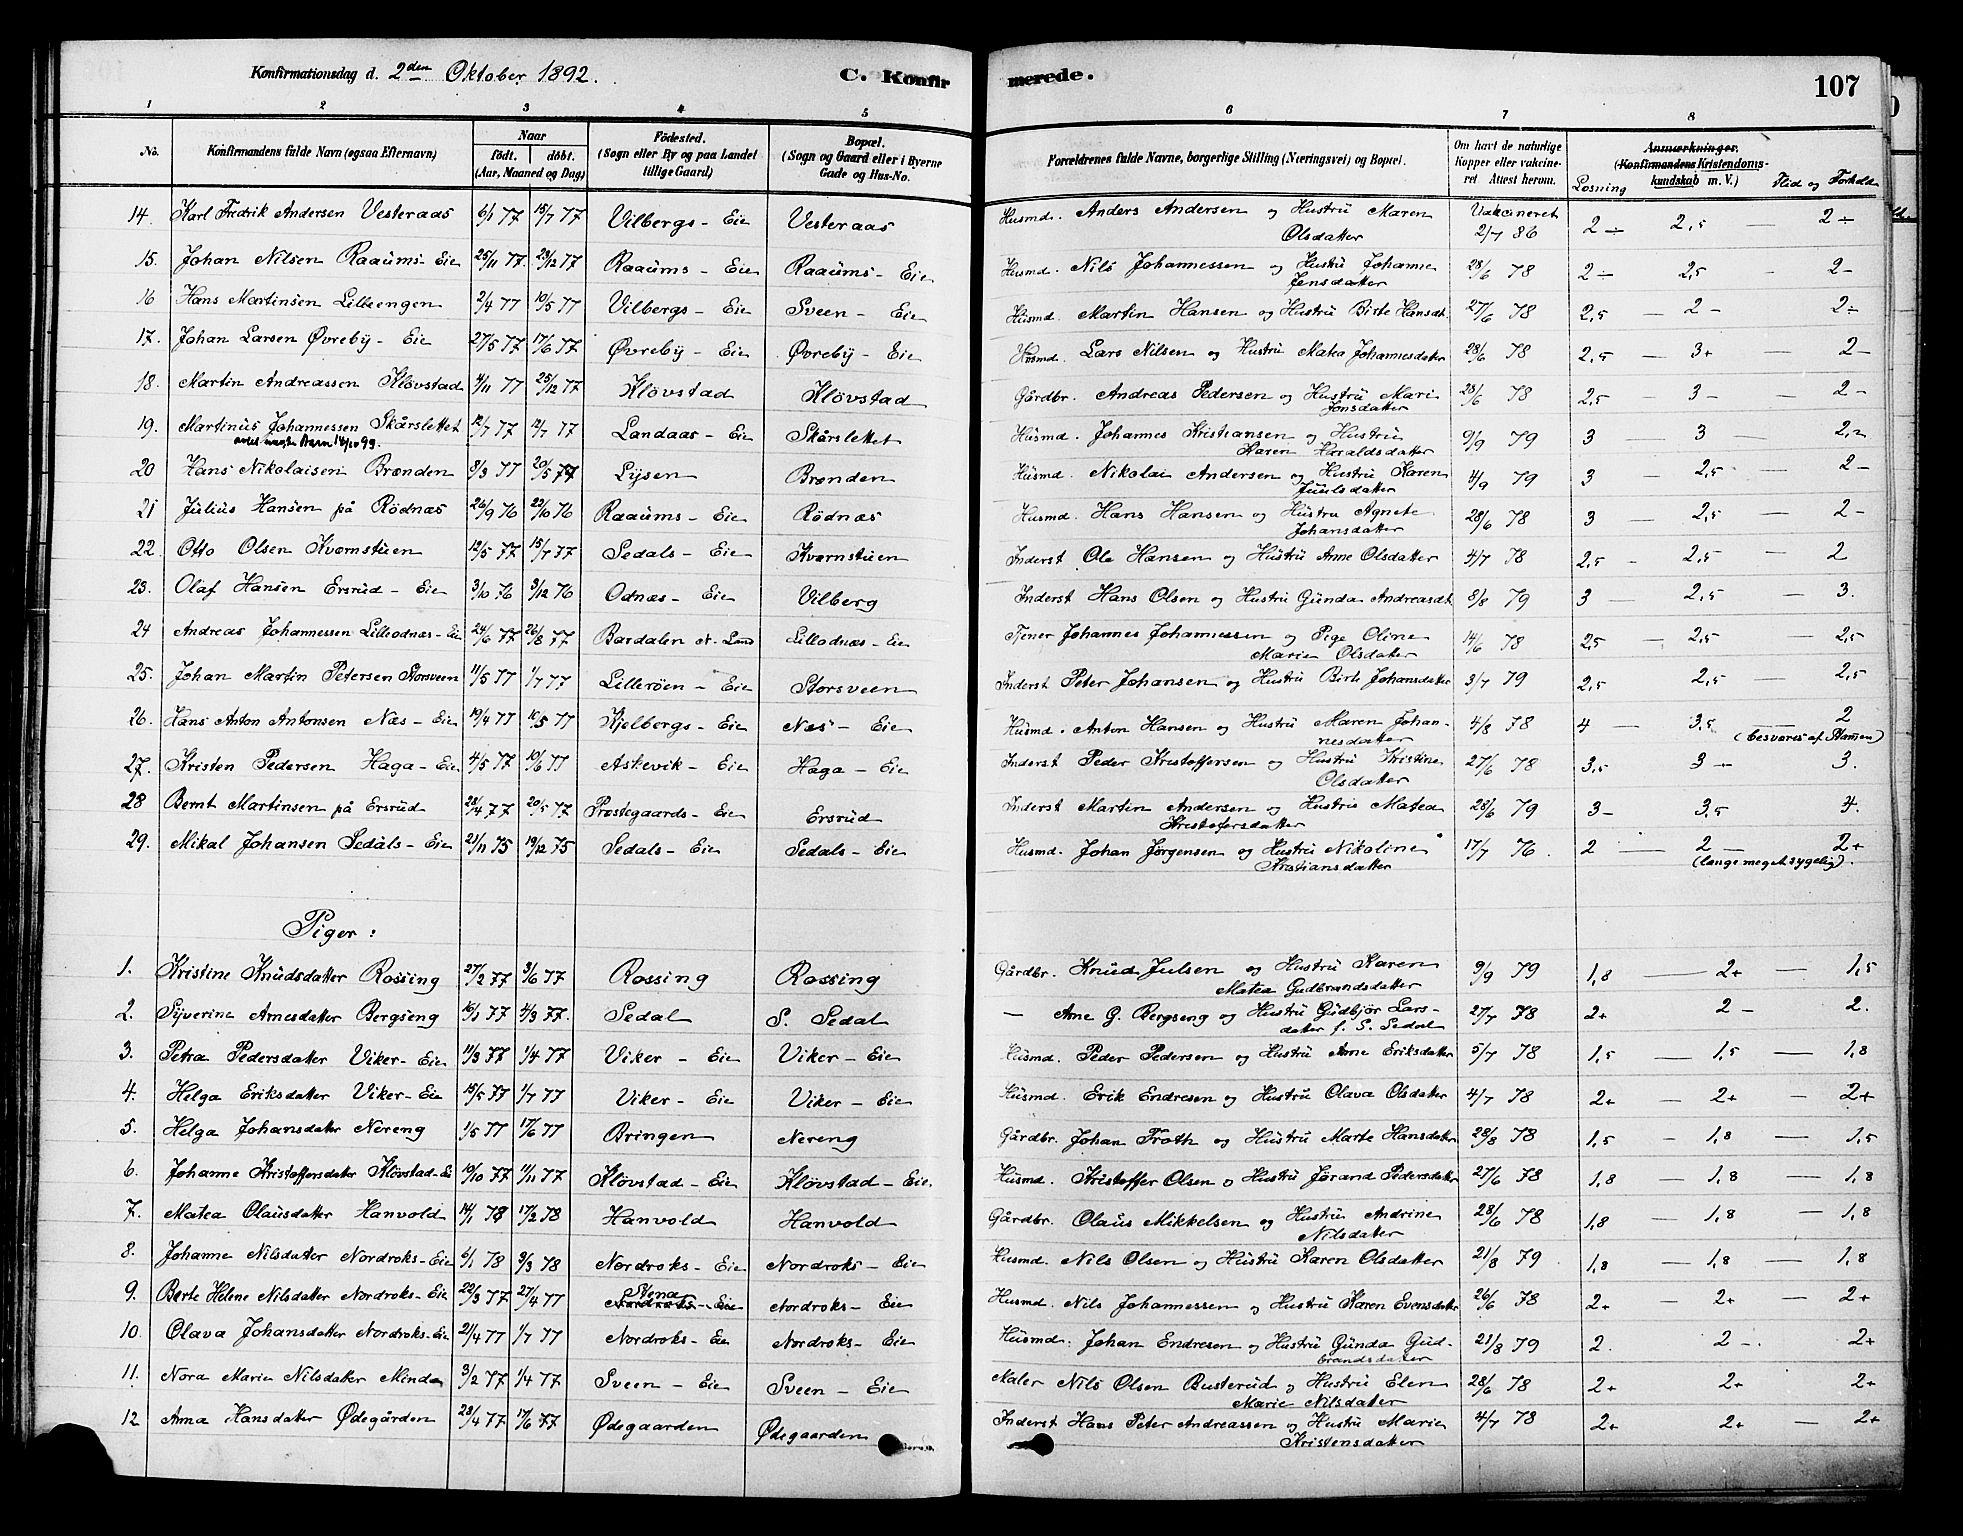 Konfirmationsdag d. 2den Oktober 1892. C. Konfirmerede. 107
1 2 3 4 5 6 7 8
No. Konfirmandens fulde Navn (ogsaa Efternavn) Naar födt. döbt. (Aar, Maaned og Dag) Födested. (Sogn eller By og paa Landet tillige Gaard) Bopæl. (Sogn og Gaard eller i Byerne Gade og Hus-No. Forældrenes fulde Navne, borgerlige Stilling (Næringsvei) og Bopæl. Om havt de naturlige Kopper eller vakcineret Attest herom. Anmærkninger. (Konfirmandens Kristendomskundskab m. V.) Læsning Flid og Forhold
14. Karl Fredrik Andersen Vesteraas 6/1 77 15/7 77 Vilbergs - Eie Vesteraas Husmd. Anders Andersen og Hustru Maren Olsdatter Vakcineret 2/7 86 2 ÷ 2,5 — 2 ÷
15. Johan Nilsen Raaums - Eie 25/11 77. 23/12 77 Raaums - Eie Raaums - Eie Husmd. Nils Johannessen og Hustru Johanne Jensdatter 28/6 78 2 ÷ 2,5 - 2 -
16 Hans Martinsen Lilleengen 2/4 77 10/5 77 Vilbergs - Eie Sveen - Eie Husmd. Martin Hansen og Hustru Birte Hansdt 27/6 78 2,5 — 2 - 2 ÷
17. Johan Larsen Øvreby - Eie 27/5 77 17/6 77 Øvreby - Eie Øvreby - Eie Husmd. Lars Nilsen og Hustru Matea Johannesdatter 28/6 78 2,5 — 3+ — 2 -
18. Martin Andreassen Klövstad 4/11 77 25/12 77 Klövstad Klövstad Gårdbr. Andreas Pedersen og Hustru Mari Jonsdatter 28/6 78 2,5 3 - 2 -
19. Martinus Johannessen Skårslettet 12/7 77 12/7 77 Landaas - Eie Skårslettet Husmd. Johannes Kristiansen og Hustru Karen Haraldsdatter 9/9 79 3 — 3 — 2,2
20 Hans Nikolaisen Brænden 8/3 77 20/5 77 Lysen Brænden Husmd. Nikolai Andersen og Hustru Karen Juulsdatter 4/9 79 3 2,5 — 2 -
21 Julius Hansen på Rödnæs 26/9 76 22/10 76 Raaums - Eie Rödnæs Husmd. Hans Hansen og Hustru Agnete Johansdatter 28/6 78 3 — 2,5 — 2 -
22. Otto Olsen Kværnstuen 12/5 77 15/7 77 Sedals - Eie Kværnstuen Inderst Ole Hansen og Hustru Anne Olsdatter 4/7 78 2,5 - 2,5 — 2
23. Olaf Hansen Ersrud - Eie 3/10 76 3/12 76 Odnæs - Eie Vilberg Inderst Hans Olsen og Hustru Gunda Andreasdt 8/8 79 3 — 2,5 — 3.
24 Andreas Johannessen Lilleodnæs - Eie 24/6 77 26/8 77 Bardalen N. Land Lilleodnæs - Eie Tjener Johannes Johannessen og Pige Oline Marie Olsdatter 14/6 78 2,5 — 2,5 — 2,5
25. Johan Martin Petersen Storsveen 11/5 77 1/7 77 Lilleröen - Eie Storsveen Inderst Peter Johansen og Hustru Birte Johansdatter 3/7 79 2,5 2,5 — 2,5
26. Hans Anton Antonsen Næs - Eie 19/4 77 10/5 77 Kjelbergs - Eie Næs - Eie Husmd. Anton Hansen og Hustru Maren Johannesdatter 4/8 78 4 — 3,5 — 2 (besværes af Stammen)
27. Kristen Pedersen Haga - Eie 4/5 77 10/6 77 Askevik - Eie Haga - Eie Inderst Peder Kristoffersen og Hustru Kristine Olsdatter 27/6 78 3,5 3 - 3.
28 Bernt Martinsen på Ersrud 28/4 77 20/5 77 Præstegaards - Eie Ersrud Inderst Martin Andersen og Hustru Matea Kristofersdatter 28/6 79 3 - 3,5 4.
29. Mikal Johansen Sedals - Eie 21/11 75 19/12 75 Sedals - Eie Sedals - Eie Husmd. Johan Jørgensen og Hustru Nikoline Kristiansdatter 17/7 76. 2 — 2 — 2+ (længe meget sygelig).
Piger:
1. Kristine Knudsdatter Rossing 27/2 77 3/6 77 Rossing Rossing Gårdbr. Knud Julsen og Hustru Karen Matea Gudbrandsdatter 9/9 79 1,8 — 2+ — 1,5
2. Syverine Arnesdatter Bergseng 10/1 77 4/3 77. Sedal S. Sedal — Arne G. Bergseng og Hustru Gudbjör Larsdatter f. S. Sedal 27/7 78 2+ 2 - 2.
3. Petra Pedersdatter Viker - Eie 11/3 77 1/4 77 Viker - Eie Viker - Eie Husmd. Peder Pedersen og Hustru Anne Eriksdatter 5/7 78 1,5 — 1,5 — 1,8
4. Helga Eriksdatter Viker - Eie 15/5 77 1/7 77 Viker - Eie Viker - Eie Husmd. Erik Endresen og Hustru Olava Olsdatter 4/7 78 2+ — 2+ - 2+
5. Helga Johansdatter Nereng 1/5 77 17/6 77 Bringen Nereng Gårdbr. Johan Froth og Hustru Marte Hansdatter 28/8 78 1,5 - 1,8 — 1,5
6. Johanne Kristoffersdatter Klövstad - Eie 19/10 77 11/11 77 Klövstad - Eie Klövstad - Eie. Husmd. Kristoffer Olsen o Hustru Jørand Pedersdatter 27/6 78 1,8 — 1,8 — 1,8
7. Matea Olausdatter Hanvold 14/1 78 17/2 78 Hanvold Hanvold Gårdbr. Olaus Mikkelsen og Hustru Andrine Nilsdatter 28/6 78 1,8 — 1,8 — 1,8
8. Johanne Nilsdatter Nordroks - Eie 6/1 78 3/3 78 Nordroks - Eie Nordroks - Eie Husmd. Nils Olsen og Hustru Karen Olsdatter 21/8 79 1,8 — 1,8 — 1,8
9. Berte Helene Nilsdatter Nordroks - Eie 22/3 77 27/4 77 Nordroks - Eie Nordroks - Eie Husmd. Nils Johannessen og Hustru Karen Evensdatter 26/6 78 2+ — 2+ — 2+
10. Olava Johansdatter Nordroks - Eie 2/4 77 1/7 77 Nordroks - Eie Nordroks - Eie Husmd. Johan Endresen og Hustru Gunda Gudbrandsdatter 21/8 79 2. 2 -. 2+
11. Nora Marie Nilsdatter Minda 3/2 77 1/4 77 Sveen - Eie Sveen - Eie Maler Nils Olsen Busterud og Hustru Elen Marie Nilsdatter 28/6 78 2+ — 2+ — 2+
12 Anna Hansdatter Ødegården 23/4 77 17/6 77 Ødegaarden Ødegaarden Inderst Hans Peter Andreassen og Hustru Marie Kristensdatter 4/7 78 2+ 2+ — 2+